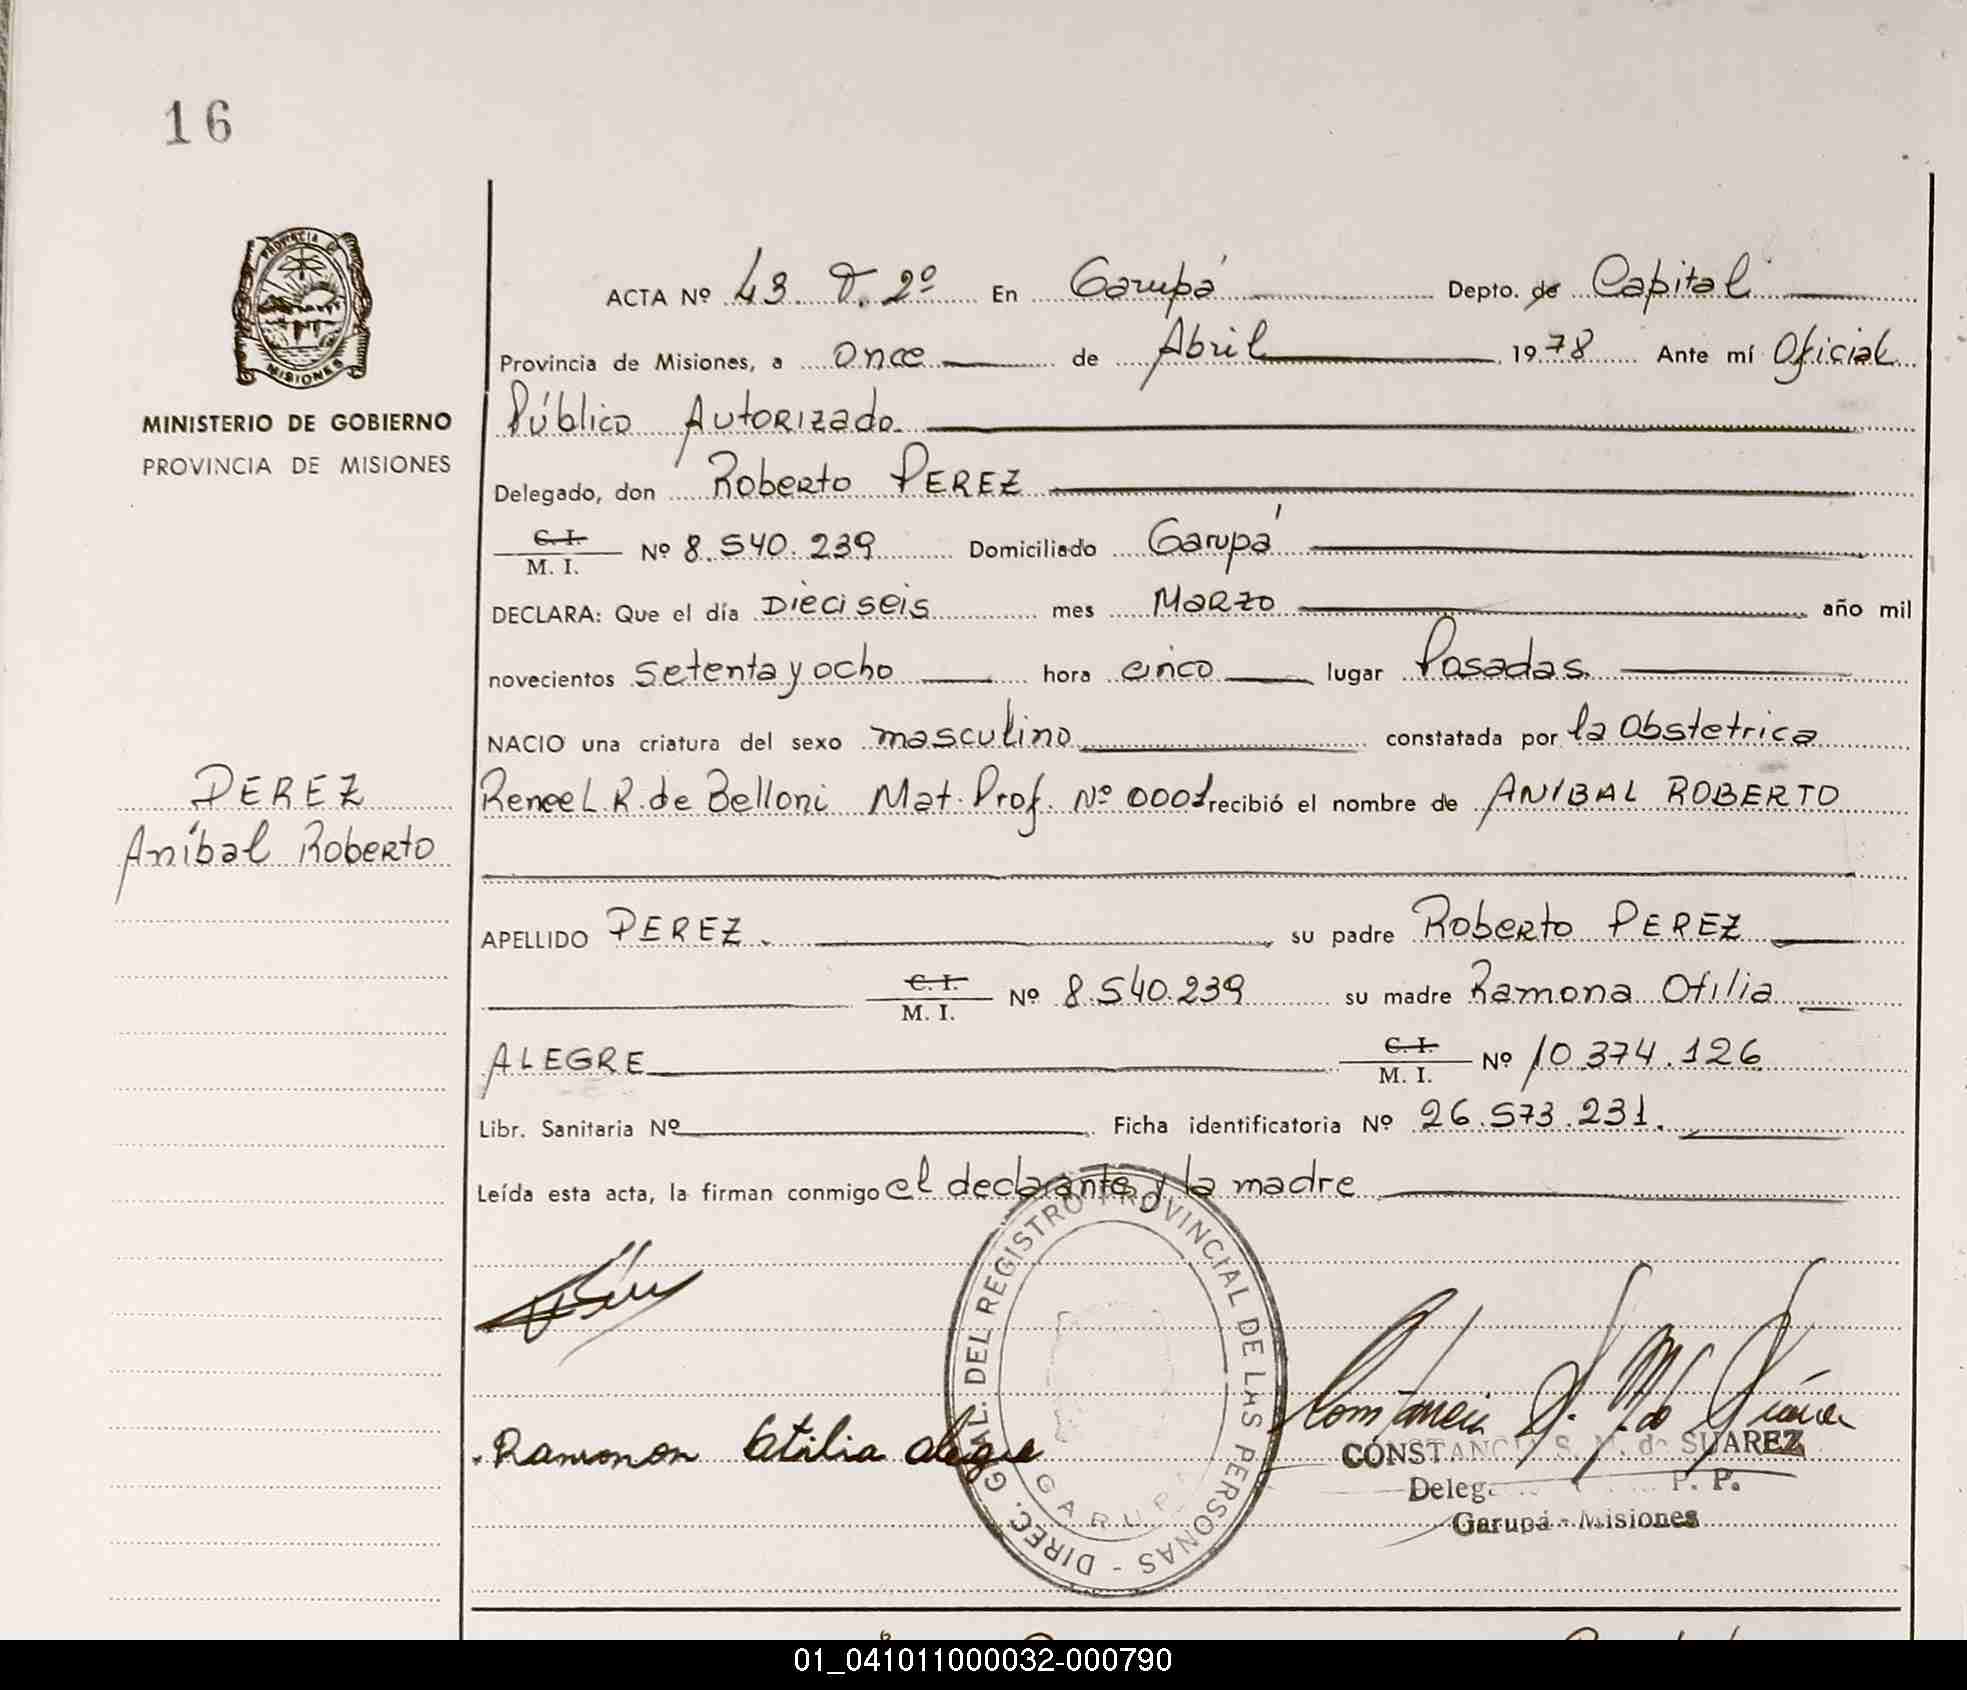 16
PROVINCIA DE
MISIONES
MINISTERIO DE GOBIERNO
PROVINCIA DE MISIONES
ACTA Nº 43. T. 2º En Garupá Depto. de Capital
Provincia de Misiones, a once de Abril 1978 Ante mí Oficial
Público Autorizado.
Delegado, don Roberto PEREZ
C. I.
M. I. Nº 8.540.239 Domiciliado Garupá
DECLARA: Que el día Dieciseis mes Marzo año mil
novecientos setenta y ocho hora cinco lugar Posadas.
NACIO una criatura del sexo masculino constatada por la Obstetrica
Renee L. R. de Belloni Mat. Prof. Nº 0001 recibió el nombre de ANIBAL ROBERTO
PEREZ
Aníbal Roberto
APELLIDO PEREZ. su padre Roberto PEREZ
C. I.
M. I. Nº 8.540.239 su madre Ramona Otilia
ALEGRE C. I.
M. I. Nº 10.374.126
Libr. Sanitaria Nº Ficha identificatoria Nº 26.573.231.
Leída esta acta, la firman conmigo el declarante y la madre
DIREC. GRAL. DEL REGISTRO PROVINCIAL DE LAS PERSONAS -
GARUPA
Ramonon Otilia Alegre
CONSTANCIA S. M. de SUAREZ
P. P.
Garupá - Misiones
01_041011000032-000790